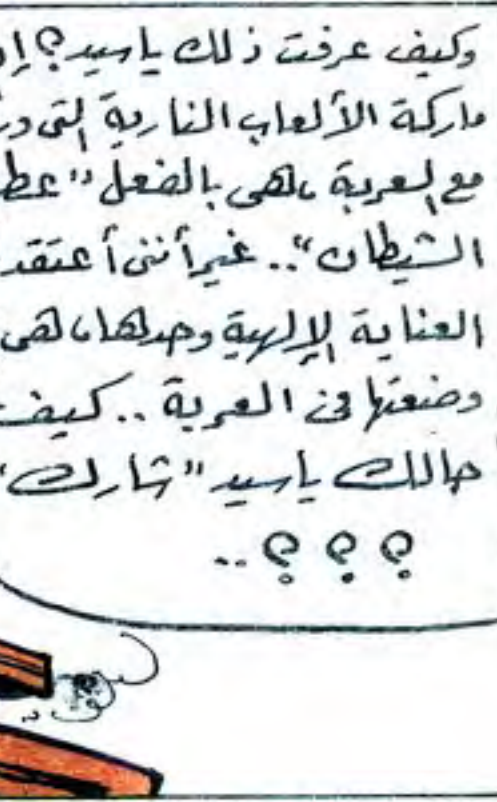 وكيف عرفت ذلك ياسيد؟ إن
ماركة الألعاب النارية التى
مع العربة ، لهى بالفعل "عط
الشيطان".. غير أننى أعتقد
العناية الإلهية وحدها، هى
وضعتها فى العربة .. كيف
حالك ياسيد "شارك"
؟ ؟ ؟ ..